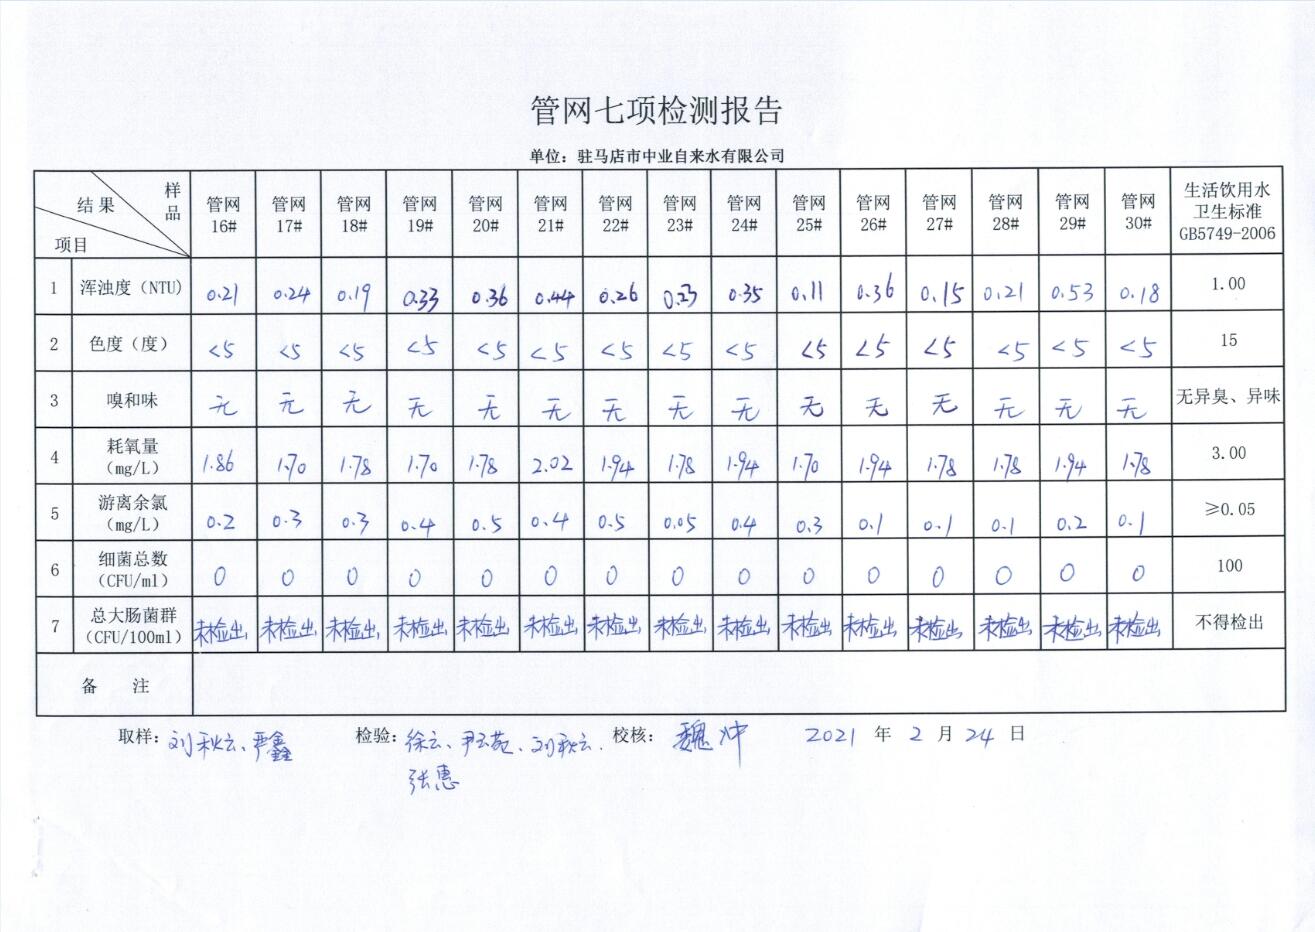 管网七项检测报告
单位：驻马店市中业自来水有限公司
结果 样品 项目 管网16# 管网17# 管网18# 管网19# 管网20# 管网21# 管网22# 管网23# 管网24# 管网25# 管网26# 管网27# 管网28# 管网29# 管网30# 生活饮用水卫生标准GB5749-2006
1 浑浊度（NTU） 0.21 0.24 0.19 0.33 0.36 0.44 0.26 0.23 0.35 0.11 0.36 0.15 0.21 0.53 0.18 1.00
2 色度（度） <5 <5 <5 <5 <5 <5 <5 <5 <5 <5 <5 <5 <5 <5 <5 15
3 嗅和味 无 无 无 无 无 无 无 无 无 无 无 无 无 无 无 无异臭、异味
4 耗氧量（mg/L） 1.86 1.70 1.78 1.70 1.78 2.02 1.94 1.78 1.94 1.70 1.94 1.78 1.78 1.94 1.78 3.00
5 游离余氯（mg/L） 0.2 0.3 0.3 0.4 0.5 0.4 0.5 0.05 0.4 0.3 0.1 0.1 0.1 0.2 0.1 ≥0.05
6 细菌总数（CFU/ml） 0 0 0 0 0 0 0 0 0 0 0 0 0 0 0 100
7 总大肠菌群（CFU/100ml） 未检出 未检出 未检出 未检出 未检出 未检出 未检出 未检出 未检出 未检出 未检出 未检出 未检出 未检出 未检出 不得检出
备 注
取样：刘秋云、严鑫 检验：徐云、尹云苑、刘秋云. 校核：魏冲 2021 年 2 月 24 日
张惠